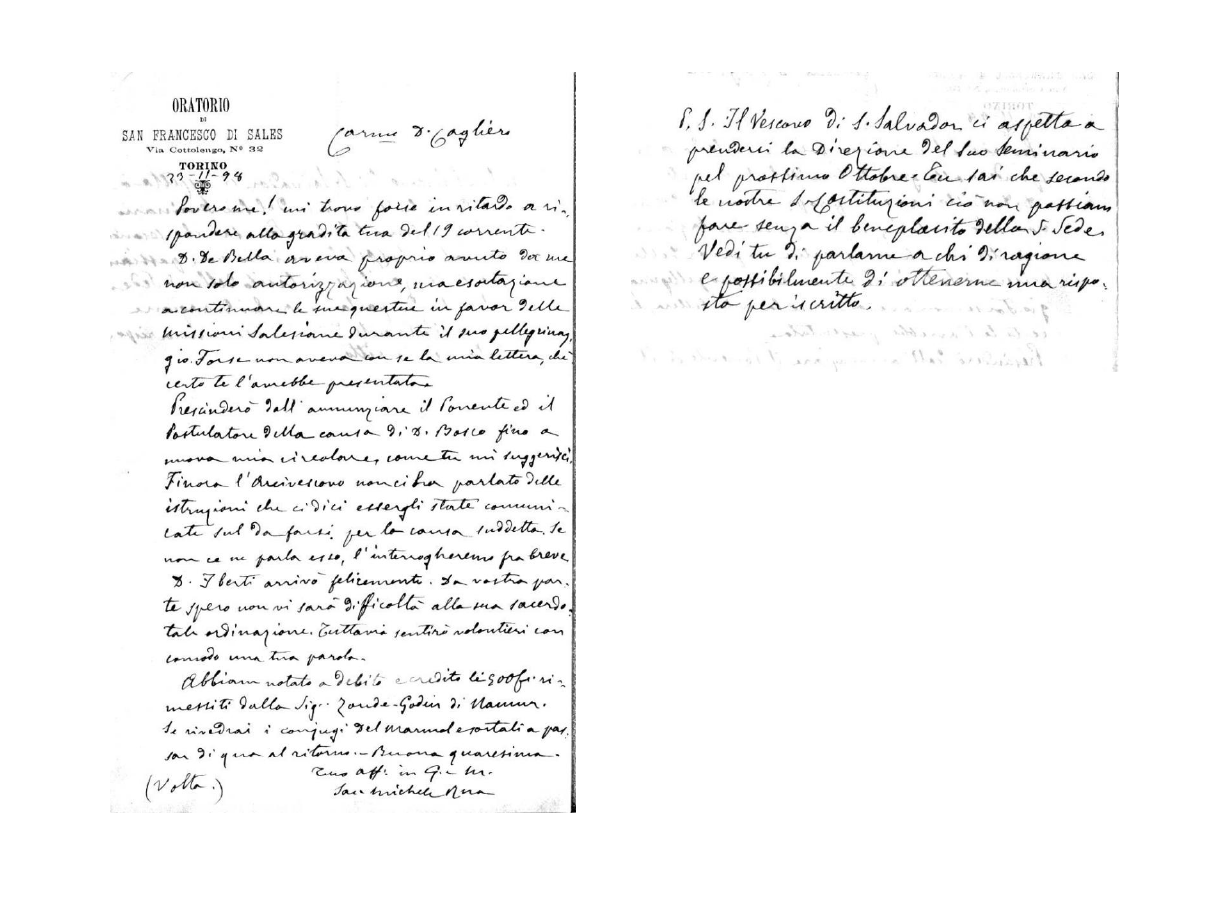 ORATORIO
DI
SAN FRANCESCO DI SALES
Via Cottolengo, Nº 32
TORINO
23-11-98
Carmo D. Cagliero
Povero me! mi trovo forse in ritardo a ri-
spondere alla gradita tua del 19 corrente.
D. De Bella aveva proprio avuto da me
non solo autorizzazione, ma esortazione
a continuare le sue questue in favor delle
missioni Salesiane durante il suo pellegrinag-
gio. Forse non aveva con se la mia lettera, chè
certo te l'avrebbe presentata.
Prescinderò dall'annunziare il Ponente ed il
Postulatore della causa di D. Bosco fino a
nuova mia circolare, come tu mi suggerisci.
Finora l'Arcivescovo non ci ha parlato delle
istruzioni che ci dici essergli state comuni-
cate sul da farsi per la causa suddetta. Se
non ce ne parla esso, l'interrogheremo fra breve
D. Iberti arrivò felicemente. Da vostra par-
te spero non vi sarà difficoltà alla sua sacerdo-
tale ordinazione. Tuttavia sentirò volontieri con
comodo una tua parola.
Abbiam notato a debito e credito li 500 f. ri-
messiti dalla Sig. Zoude-Godin di Namur.
Se rivedrai i conjugi Del Marmol esortali a pas-
sar di qua al ritorno. - Buona quaresima.
Tuo aff. in G. e M.
Sac. Michele Rua
(Volta.)
P. S. Il Vescovo di S. Salvador ci aspetta a
prenderci la Direzione del suo Seminario
pel prossimo Ottobre. Tu sai che secondo
le nostre S. Costituzioni ciò non possiam
fare senza il beneplacito della S. Sede.
Vedi tu di parlarne a chi di ragione
e possibilmente di ottenerne una rispo-
sta per iscritto.